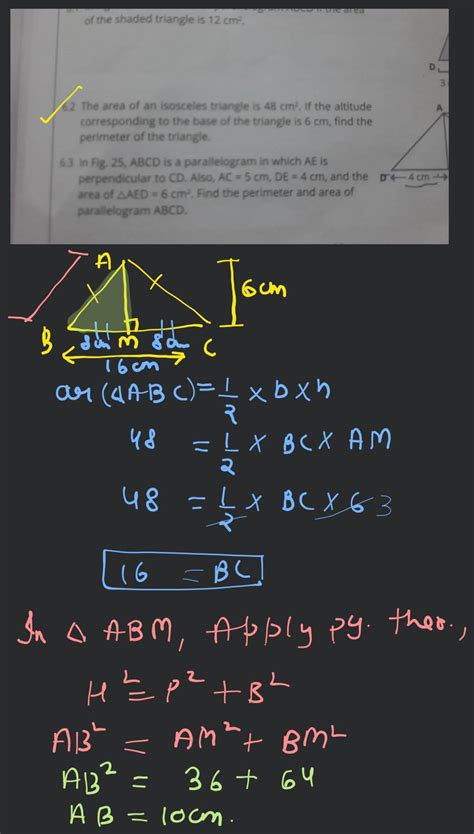 of the shaded triangle is 12 cm².
6.2 The area of an isosceles triangle is 48 cm². If the altitude
corresponding to the base of the triangle is 6 cm, find the
perimeter of the triangle.
6.3 In Fig. 25, ABCD is a parallelogram in which AE is
perpendicular to CD. Also, AC = 5 cm, DE = 4 cm, and the
area of △AED = 6 cm². Find the perimeter and area of
parallelogram ABCD.
D
3
A
D ← 4 cm →
A
6cm
B 8cm M 8cm C
16cm
ar(△ABC)=1/2 × b × h
48 = 1/2 × BC × AM
48 = 1/2 × BC × 6 3
16 = BC
In △ ABM, Apply py. theo.,
H² = P² + B²
AB² = AM² + BM²
AB² = 36 + 64
AB = 10cm.